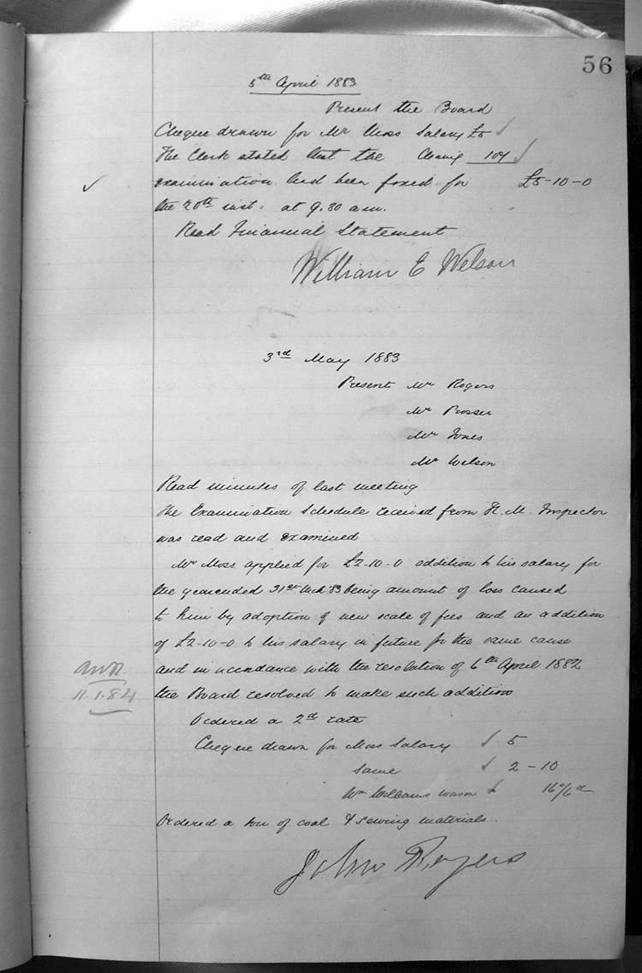 56
5th April 1883
Present the Board
Cheque drawn for Mr Moss Salary £5
The Clerk stated that the 10/-
examination had been fixed for £5-10-0
the 20th inst. at 9.30 a.m.
Read Financial Statement
William E Welson
3rd May 1883
Present Mr Rogers
Mr Prosser
Mr Jones
Mr Welson
Read minutes of last meeting
The Examination Schedule received from H. M. Inspector
was read and examined
Mr Moss applied for £2-10-0 addition to his salary for
the year ended 31st Mch '83 being amount of loss caused
to him by adoption of new scale of fees and an addition
of £2-10-0 to his salary in future for the same cause
and in accordance with the resolution of 6th April 1882
the Board resolved to make such addition
11.1.84
Ordered a 2d rate
Cheque drawn for Moss Salary £ 5
Same £ 2-10
Wm Williams £ 16/6d
Ordered a ton of coal & sewing materials
John Rogers